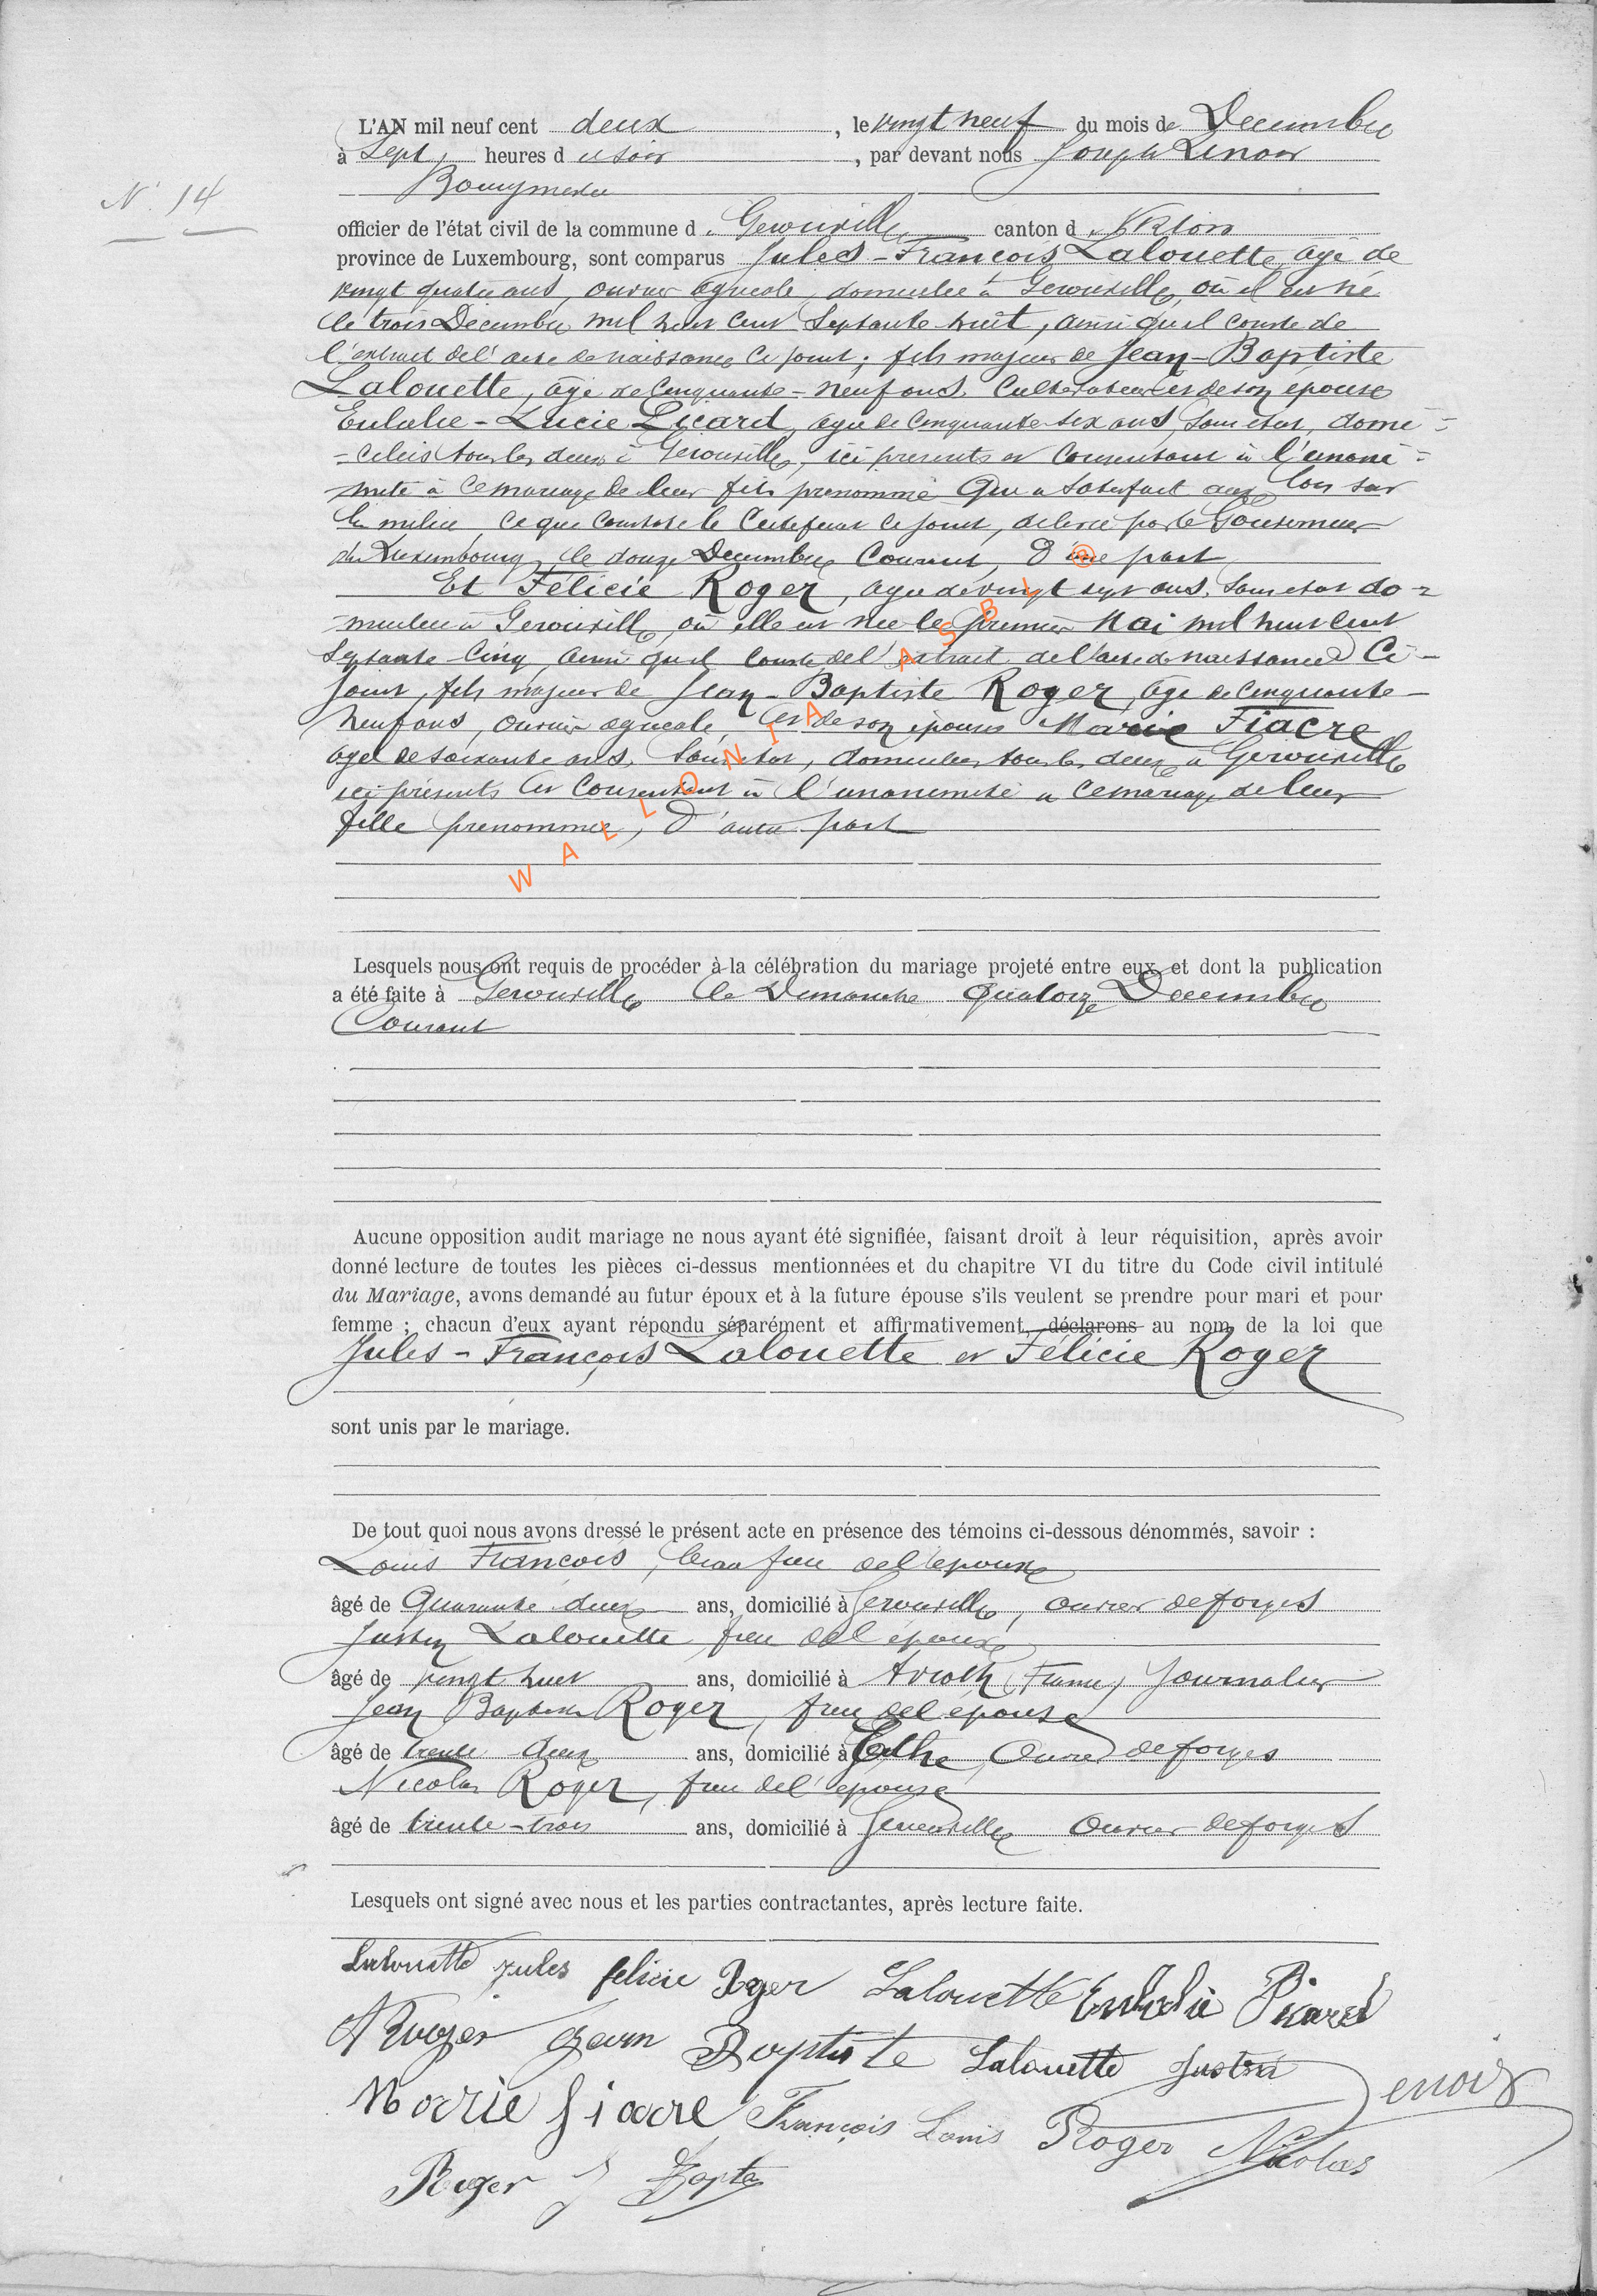 L'AN mil neuf cent deux, le vingt neuf du mois de Decembre
à Sept heures d u soir, par devant nous Joseph Lenoir
Bourgmestre
N° 14
officier de l'état civil de la commune d e Gerouville canton d Virton
province de Luxembourg, sont comparus Jules-François Lalouette, agé de
vingt quatre ans, ouvrier agricole, domicilié à Gerouville, où il est né
le trois Decembre mil huit cent septante huit, ainsi qu'il conste de
l'extrait de l'acte de naissance ci joint; fils majeur de Jean-Baptiste
Lalouette, âgé de Cinquante-neuf ans, Cultivateur et de son epouse
Eulalie-Lucie Picard, agée de Cinquante six ans, sans etat, domi=
=ciliés tous les deux à Gerouville, ici presents et consentant à l'unani=
mité à ce mariage de leur fils prenommé qui a satisfait aux lois sur
la milice, ce que constate le Certificat ci joint, delivré par le Gouverneur
du Luxembourg, le douze Decembre Courant, D'une part
Et Félicie Roger, agée de vingt sept ans, sans etat do=
miciliée à Gerouville, où elle est née le premier Mai mil huit cent
Septante Cinq, ainsi qu'il conste de l'extrait de l'acte de naissance Ci-
Joint, fils majeur de Jean-Baptiste Roger, âgé de cinquante-
neuf ans, ouvrier agricole, et de son épouse Marie Fiacre
agée de soixante ans, sans etat, domiciliés tous les deux à Gerouville
ici présents et Consentant à l'unanimité à ce mariage de leur
fille prenommée, D'autre part
WALLONIA ASBL ®
Lesquels nous ont requis de procéder à la célébration du mariage projeté entre eux et dont la publication
a été faite à Gerouville le Dimanche Quatorze Decembre
Courant
Aucune opposition audit mariage ne nous ayant été signifiée, faisant droit à leur réquisition, après avoir
donné lecture de toutes les pièces ci-dessus mentionnées et du chapitre VI du titre du Code civil intitulé
du Mariage, avons demandé au futur époux et à la future épouse s'ils veulent se prendre pour mari et pour
femme ; chacun d'eux ayant répondu séparément et affirmativement, déclarons au nom de la loi que
Jules-François Lalouette et Félicie Roger
sont unis par le mariage.
De tout quoi nous avons dressé le présent acte en présence des témoins ci-dessous dénommés, savoir :
Louis François, beau frere de l'epoux
âgé de Quarante deux ans, domicilié à Gerouville, ouvrier de forges
Justin Lalouette frere de l'époux
âgé de vingt huit ans, domicilié à Avioth (France) Journalier
Jean Baptiste Roger, frere de l'épouse
âgé de trente deux ans, domicilié à Ethe, Ouvrier de forges
Nicolas Roger, frere de l'epouse
âgé de trente-trois ans, domicilié à Gerouville Ouvrier de forges
Lesquels ont signé avec nous et les parties contractantes, après lecture faite.
Lalouette Jules felicie Roger Lalouette Eulalie Picard
Roger Jean Baptiste Lalouette Justin
Marie fiacre François Louis Roger Nicolas Lenoir
Roger J Bapte